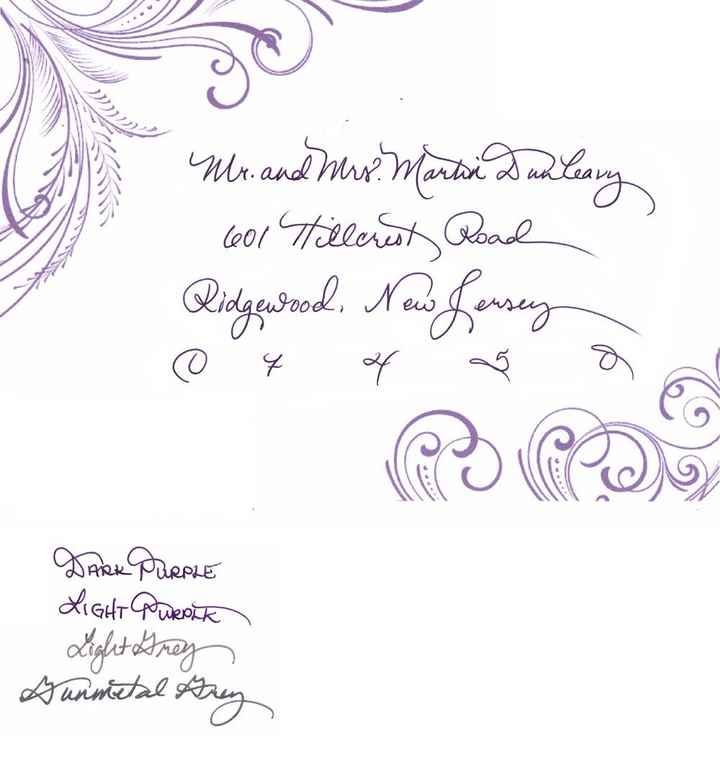 Mr. and Mrs. Martin Dunleavy
601 Hillcrest Road
Ridgewood, New Jersey
0 7 4 5 0
DARK PURPLE
LIGHT PURPLE
Light Grey
Gunmetal Grey